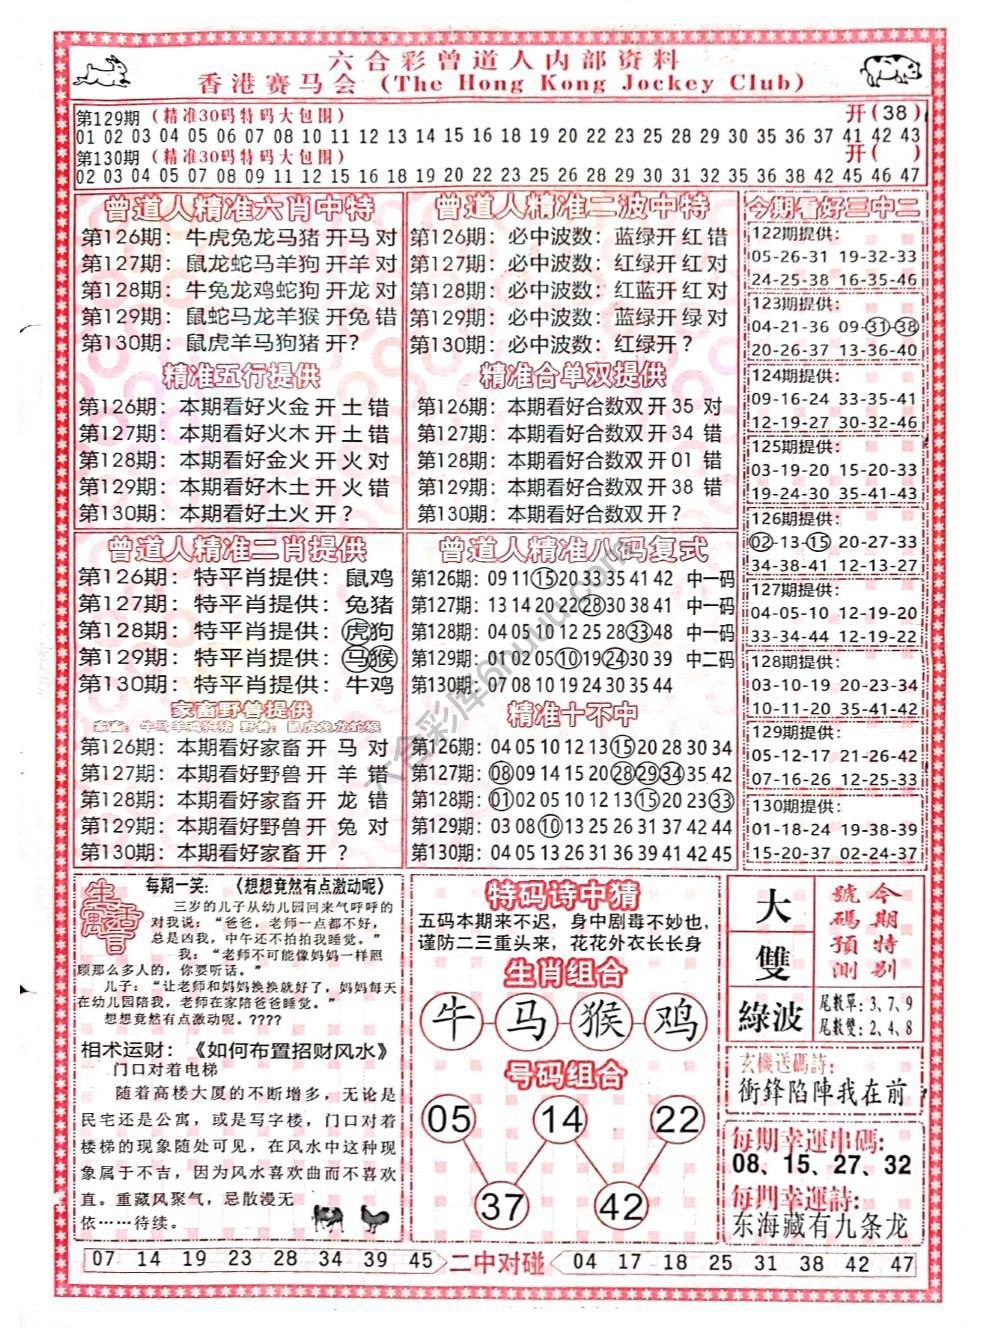 六合彩曾道人内部资料
香港赛马会 (The Hong Kong Jockey Club)
第129期(精准30码特码大包围) 开(38)
01 02 03 04 05 06 07 08 10 11 12 13 14 15 16 18 19 20 22 23 25 28 29 30 35 36 37 41 42 43
第130期(精准30码特码大包围) 开( )
02 03 04 05 07 08 09 11 12 15 16 18 19 20 22 23 25 26 27 28 30 31 32 35 38 42 45 46 47
曾道人精准六肖中特
第126期：牛虎兔龙马猪 开马 对
第127期：鼠龙蛇马羊狗 开羊 对
第128期：牛兔龙鸡蛇狗 开龙 对
第129期：鼠蛇马龙羊猴 开兔 错
第130期：鼠虎羊马狗猪 开？
精准五行提供
第126期：本期看好火金 开 土 错
第127期：本期看好火木 开 土 错
第128期：本期看好金火 开 火 对
第129期：本期看好木土 开 火 错
第130期：本期看好土火 开？
曾道人精准二波中特
第126期：必中波数：蓝绿开 红 错
第127期：必中波数：红绿开 红 对
第128期：必中波数：红蓝开 红 对
第129期：必中波数：蓝绿开 绿 对
第130期：必中波数：红绿开？
精准合单双提供
第126期：本期看好合数双 开 35 对
第127期：本期看好合数双 开 34 错
第128期：本期看好合数双 开 01 错
第129期：本期看好合数双 开 38 错
第130期：本期看好合数双 开？
今期看好三中二
122期提供：
05-26-31 19-32-33
24-25-38 16-35-46
123期提供：
04-21-36 09-31-38
20-26-37 13-36-40
124期提供：
09-16-24 33-35-41
12-19-27 30-32-46
125期提供：
03-19-20 15-20-33
19-24-30 35-41-43
126期提供：
02-13-15 20-27-33
34-38-41 12-13-27
127期提供：
04-05-10 12-19-20
33-34-44 12-19-22
128期提供：
03-10-19 20-23-34
10-11-20 35-41-45
129期提供：
05-12-17 21-26-42
07-16-26 12-25-33
130期提供：
01-18-24 19-38-39
15-20-37 02-24-37
曾道人精准二肖提供
第126期：特平肖提供：鼠鸡
第127期：特平肖提供：兔猪
第128期：特平肖提供：虎狗
第129期：特平肖提供：马猴
第130期：特平肖提供：牛鸡
家畜野兽提供
家畜：牛马羊鸡狗猪 野兽：鼠虎兔龙蛇猴
第126期：本期看好家畜 开 马 对
第127期：本期看好野兽 开 羊 错
第128期：本期看好家畜 开 龙 错
第129期：本期看好野兽 开 兔 对
第130期：本期看好家畜 开 ？
曾道人精准八码复式
第126期：09 11 15 20 33 35 41 42 中一码
第127期：13 14 20 22 28 30 38 41 中一码
第128期：04 05 10 12 25 28 33 48 中一码
第129期：01 02 05 10 19 24 30 39 中二码
第130期：07 08 10 19 24 30 35 44
精准十不中
第126期：04 05 10 12 13 15 20 28 30 34
第127期：08 09 14 15 20 28 29 34 35 42
第128期：01 02 05 10 12 13 15 20 23 33
第129期：03 08 10 13 25 26 31 37 42 44
第130期：04 05 13 26 31 36 39 41 42 45
六合彩库6huuu.com
每期一笑：《想想竟然有点激动呢》
三岁的儿子从幼儿园回来气呼呼的
对我说：“爸爸，老师一点都不好，
总是凶我，中午还不拍拍我睡觉。”
我：“老师不可能像妈妈一样照
顾那么多人的，你要听话。”
儿子：“让老师和妈妈换换就好了，妈妈每天
在幼儿园陪我，老师在家陪爸爸睡觉。”
想想竟然有点激动呢。????
相术运财：《如何布置招财风水》
门口对着电梯
随着高楼大厦的不断增多，无论是
民宅还是公寓，或是写字楼，门口对着
楼梯的现象随处可见，在风水中这种现
象属于不吉，因为风水喜欢曲而不喜欢
直。重藏风聚气，忌散漫无
依……待续。
特码诗中猜
五码本期来不迟，身中剧毒不妙也，
谨防二三重头来，花花外衣长长身
生肖组合
牛 马 猴 鸡
号码组合
05 14 22
37 42
大
雙
綠波
今期特别
號碼預測
尾數單：3、7、9
尾數雙：2、4、8
玄機送碼詩：
衝鋒陷陣我在前
每期幸運串碼：
08、15、27、32
每期幸運詩：
东海藏有九条龙
07 14 19 23 28 34 39 45 二中对碰 04 17 18 25 31 38 42 47